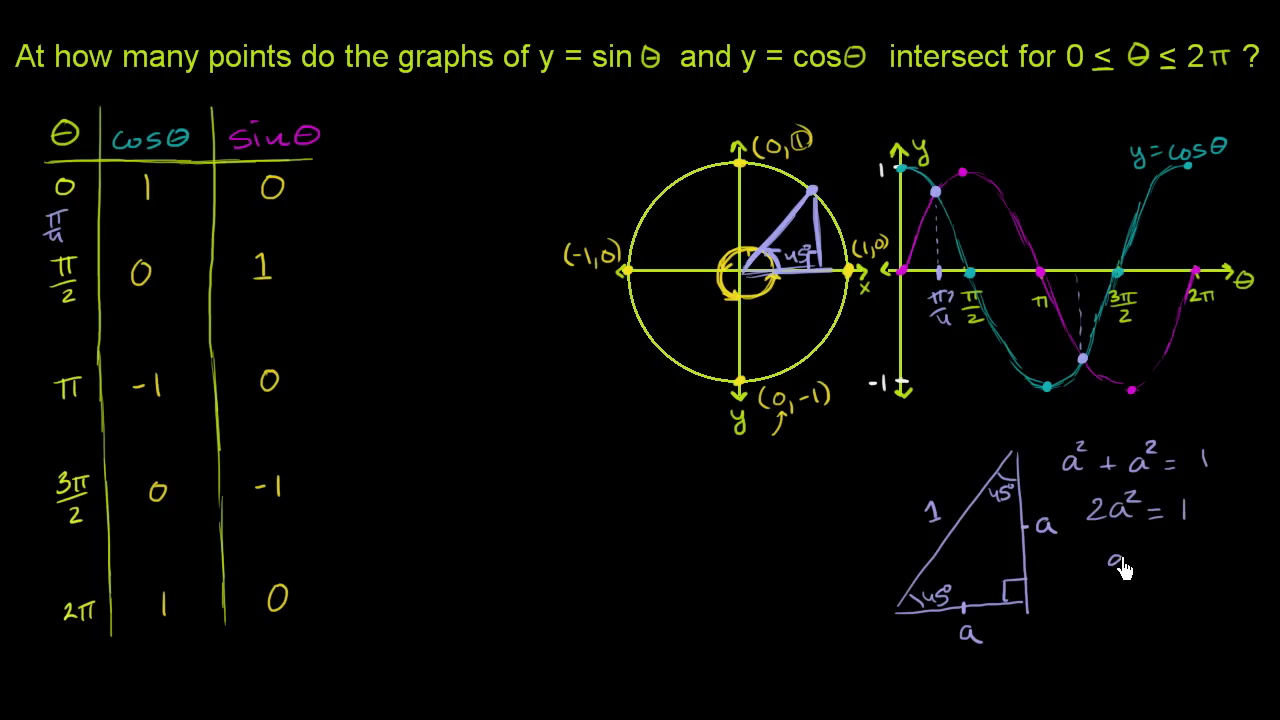 At how many points do the graphs of y = sin θ and y = cosθ intersect for 0 ≤ θ ≤ 2π ?
θ cosθ sinθ
0 1 0
π/4
π/2 0 1
π -1 0
3π/2 0 -1
2π 1 0
(0,1)
(-1,0)
45°
(1,0)
x
(0,-1)
y
y
y=cosθ
1
π/4 ?
π/2
π
3π/2
2π
θ
-1
1
45°
45°
a
a
a² + a² = 1
2a² = 1
a